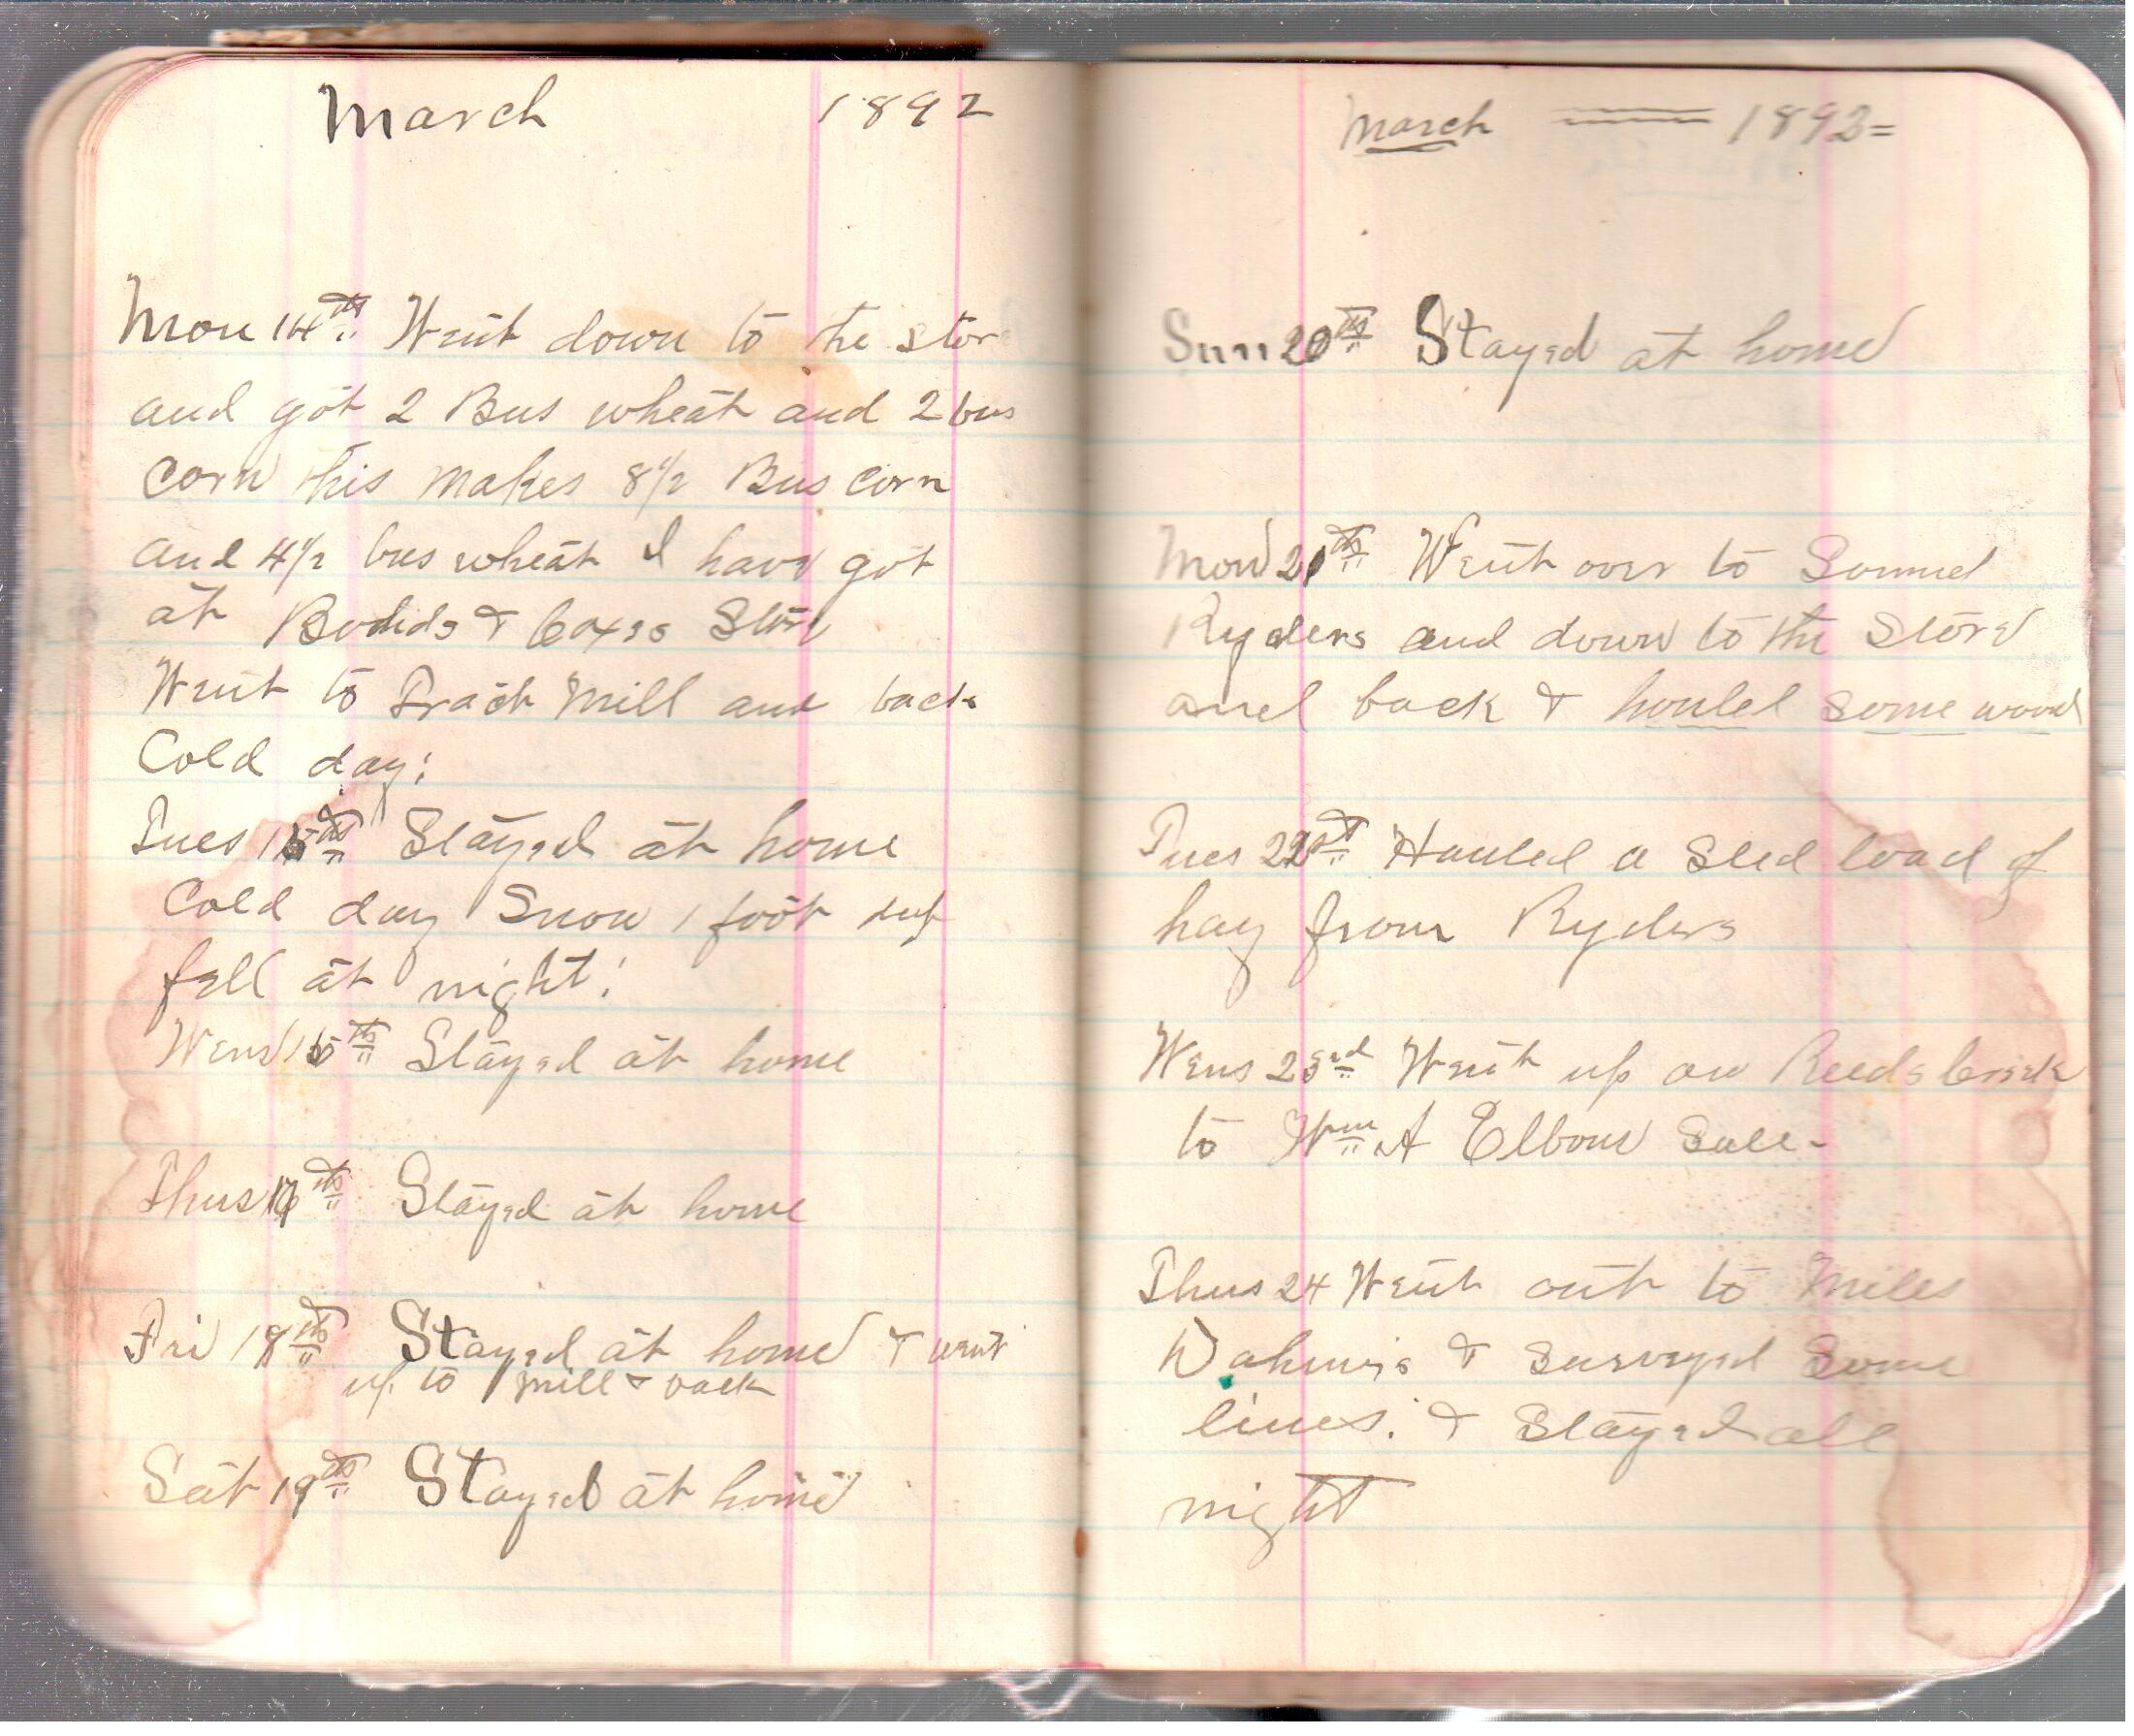 March 1892
Mon 14th Went down to the stor
and got 2 Bus wheat and 2 bus
corn this makes 8 1/2 Bus corn
and 4 1/2 bus wheat I have got
at & Store
Went to Mill and back
Cold day:
Tues 15th Stayed at home
Cold day Snow 1 foot deep
fell at night:
Wens 16th Stayed at home
Thus 17th Stayed at home
Fri 18th Stayed at home & went
up to Mill & back
Sat 19th Stayed at home
March 1892=
Sun 20th Stayed at home
Mon 21th Went over to Samuel
Ryders and down to the Store
and back & houled some wood
Tues 22st Hauled a Sled load of
hay from Ryders
Wens 23rd Went up on Reeds Creek
to Wm A Elbons Sale-
Thus 24 Went out to Miles
& Surveyed Some
lines: & Stayed all
night